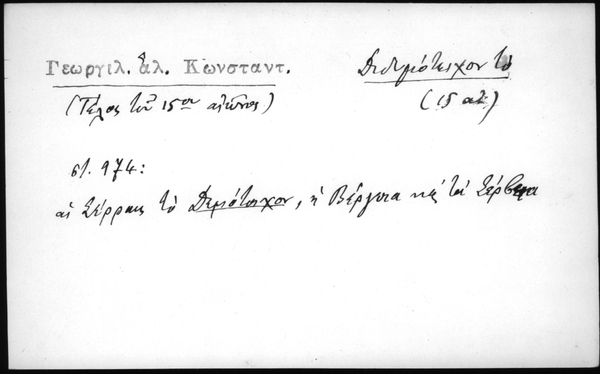 Γεωργιλ. ἅλ. Κωνσταντ.
Διδυμότειχον τὸ
(Τέλος τοῦ 15ου αἰῶνος)
(15 αἰ.)
στ. 974:
αἱ Σέρραις τὸ Διμότοιχον, ἡ Βέργοια καὶ τὰ Σέρβεια